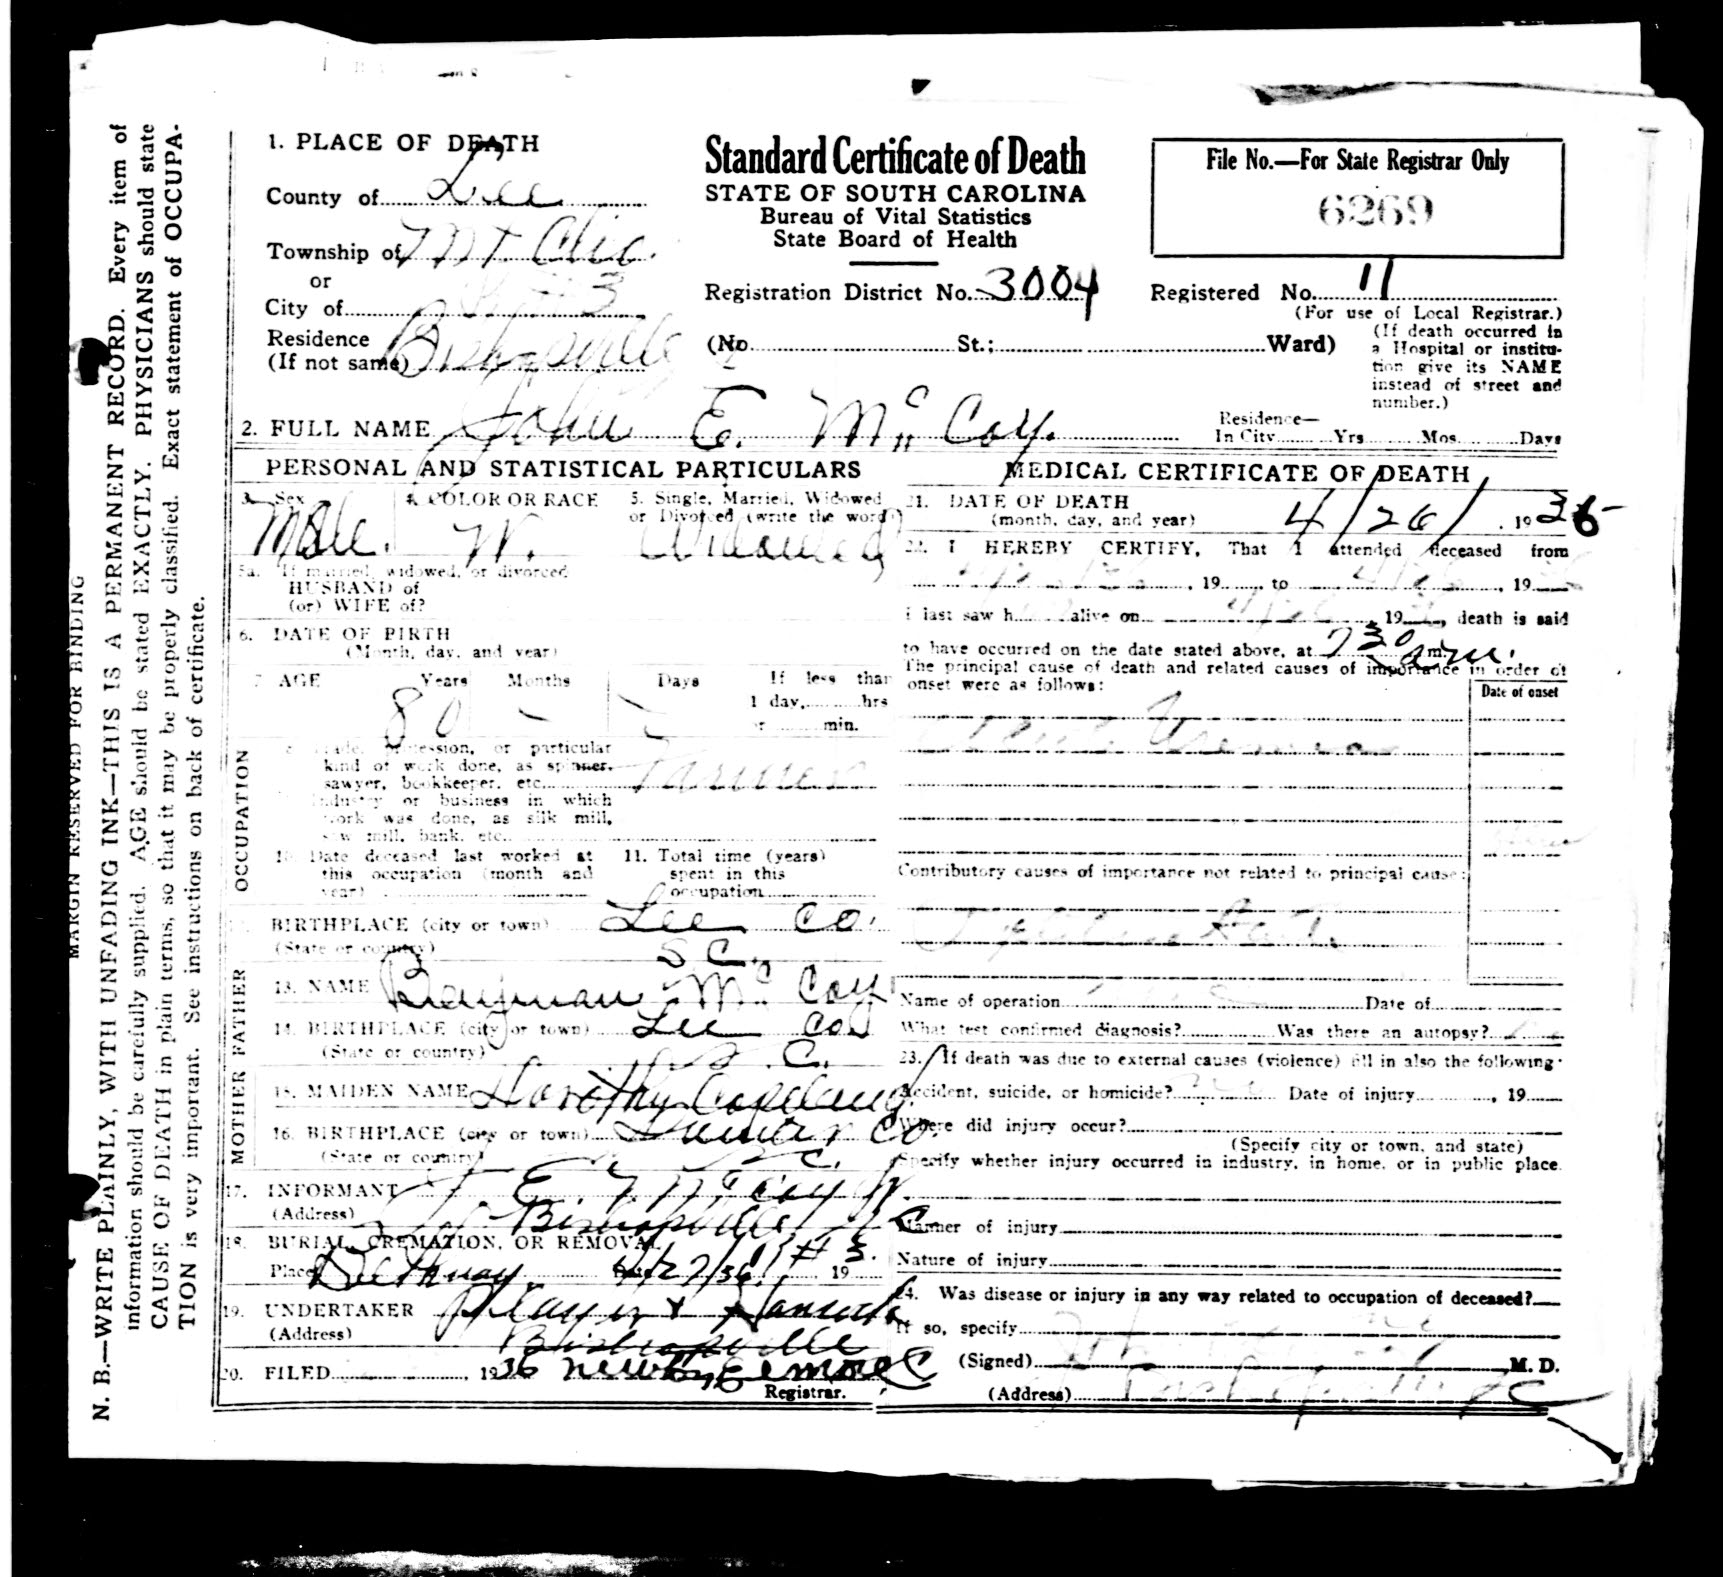 MARGIN RESERVED FOR BINDING
N. B.—WRITE PLAINLY, WITH UNFADING INK—THIS IS A PERMANENT RECORD. Every item of
information should be carefully supplied. AGE should be stated EXACTLY. PHYSICIANS should state
CAUSE OF DEATH in plain terms, so that it may be properly classified. Exact statement of OCCUPA-
TION is very important. See instructions on back of certificate.
1. PLACE OF DEATH
County of Lee
Township of Mt Clio.
or
City of 3
Residence Bishopville
(If not same)
Standard Certificate of Death
STATE OF SOUTH CAROLINA
Bureau of Vital Statistics
State Board of Health
Registration District No. 3004
(No. St.; Ward)
File No.—For State Registrar Only
6269
Registered No. 11
(For use of Local Registrar.)
(If death occurred in
a Hospital or institu-
tion give its NAME
instead of street and
number.)
2. FULL NAME John E. McCoy.
Residence—
In City Yrs Mos. Days
PERSONAL AND STATISTICAL PARTICULARS
3. Sex
Male.
4. COLOR OR RACE
W.
5. Single, Married, Widowed
or Divorced (write the word)
Widowed
5a. If married, widowed, or divorced
HUSBAND of
(or) WIFE of?
6. DATE OF BIRTH
(Month, day, and year)
7. AGE Years Months Days If less than
1 day, hrs
or min.
80 -
8. Trade, profession, or particular
kind of work done, as spinner,
sawyer, bookkeeper, etc. Farmer
Industry or business in which
work was done, as silk mill,
saw mill, bank, etc.
OCCUPATION
10. Date deceased last worked at
this occupation (month and
year)
11. Total time (years)
spent in this
occupation
BIRTHPLACE (city or town) Lee Co.
(State or country) S C.
FATHER
13. NAME McCoy
14. BIRTHPLACE (city or town) Lee Co
(State or country) S. C.
MOTHER
15. MAIDEN NAME Dorothy Copeland
16. BIRTHPLACE (city or town) Sumter Co.
(State or country) S. C.
17. INFORMANT J. E. McCoy
(Address) Bishopville S C
18. BURIAL, CREMATION, OR REMOVAL # 3.
Place Bethany. Date 4/27/36, 193
19. UNDERTAKER
(Address) Bishopville
20. FILED , 1936
Registrar.
MEDICAL CERTIFICATE OF DEATH
21. DATE OF DEATH
(month, day, and year) 4/26/, 1936
22. I HEREBY CERTIFY, That I attended deceased from
, 19 , to , 19
I last saw h alive on , 19 , death is said
to have occurred on the date stated above, at 730 a m.
The principal cause of death and related causes of importance in order of
onset were as follows:
Date of onset
Contributory causes of importance not related to principal cause:
Name of operation Date of
What test confirmed diagnosis? Was there an autopsy?
23. If death was due to external causes (violence) fill in also the following:
Accident, suicide, or homicide? Date of injury , 19
Where did injury occur?
(Specify city or town, and state)
Specify whether injury occurred in industry, in home, or in public place.
Manner of injury
Nature of injury
24. Was disease or injury in any way related to occupation of deceased?
If so, specify
(Signed) M. D.
(Address) S C